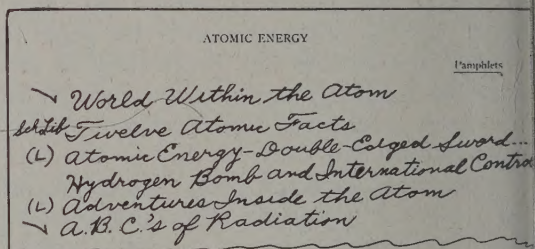 ATOMIC ENERGY
Pamphlets
✓ World Within the Atom
Sch Lib Twelve Atomic Facts
(L) Atomic Energy-Double-Edged Sword...
Hydrogen Bomb and International Contro
(L) Adventures Inside the Atom
✓ A.B.C.'s of Radiation